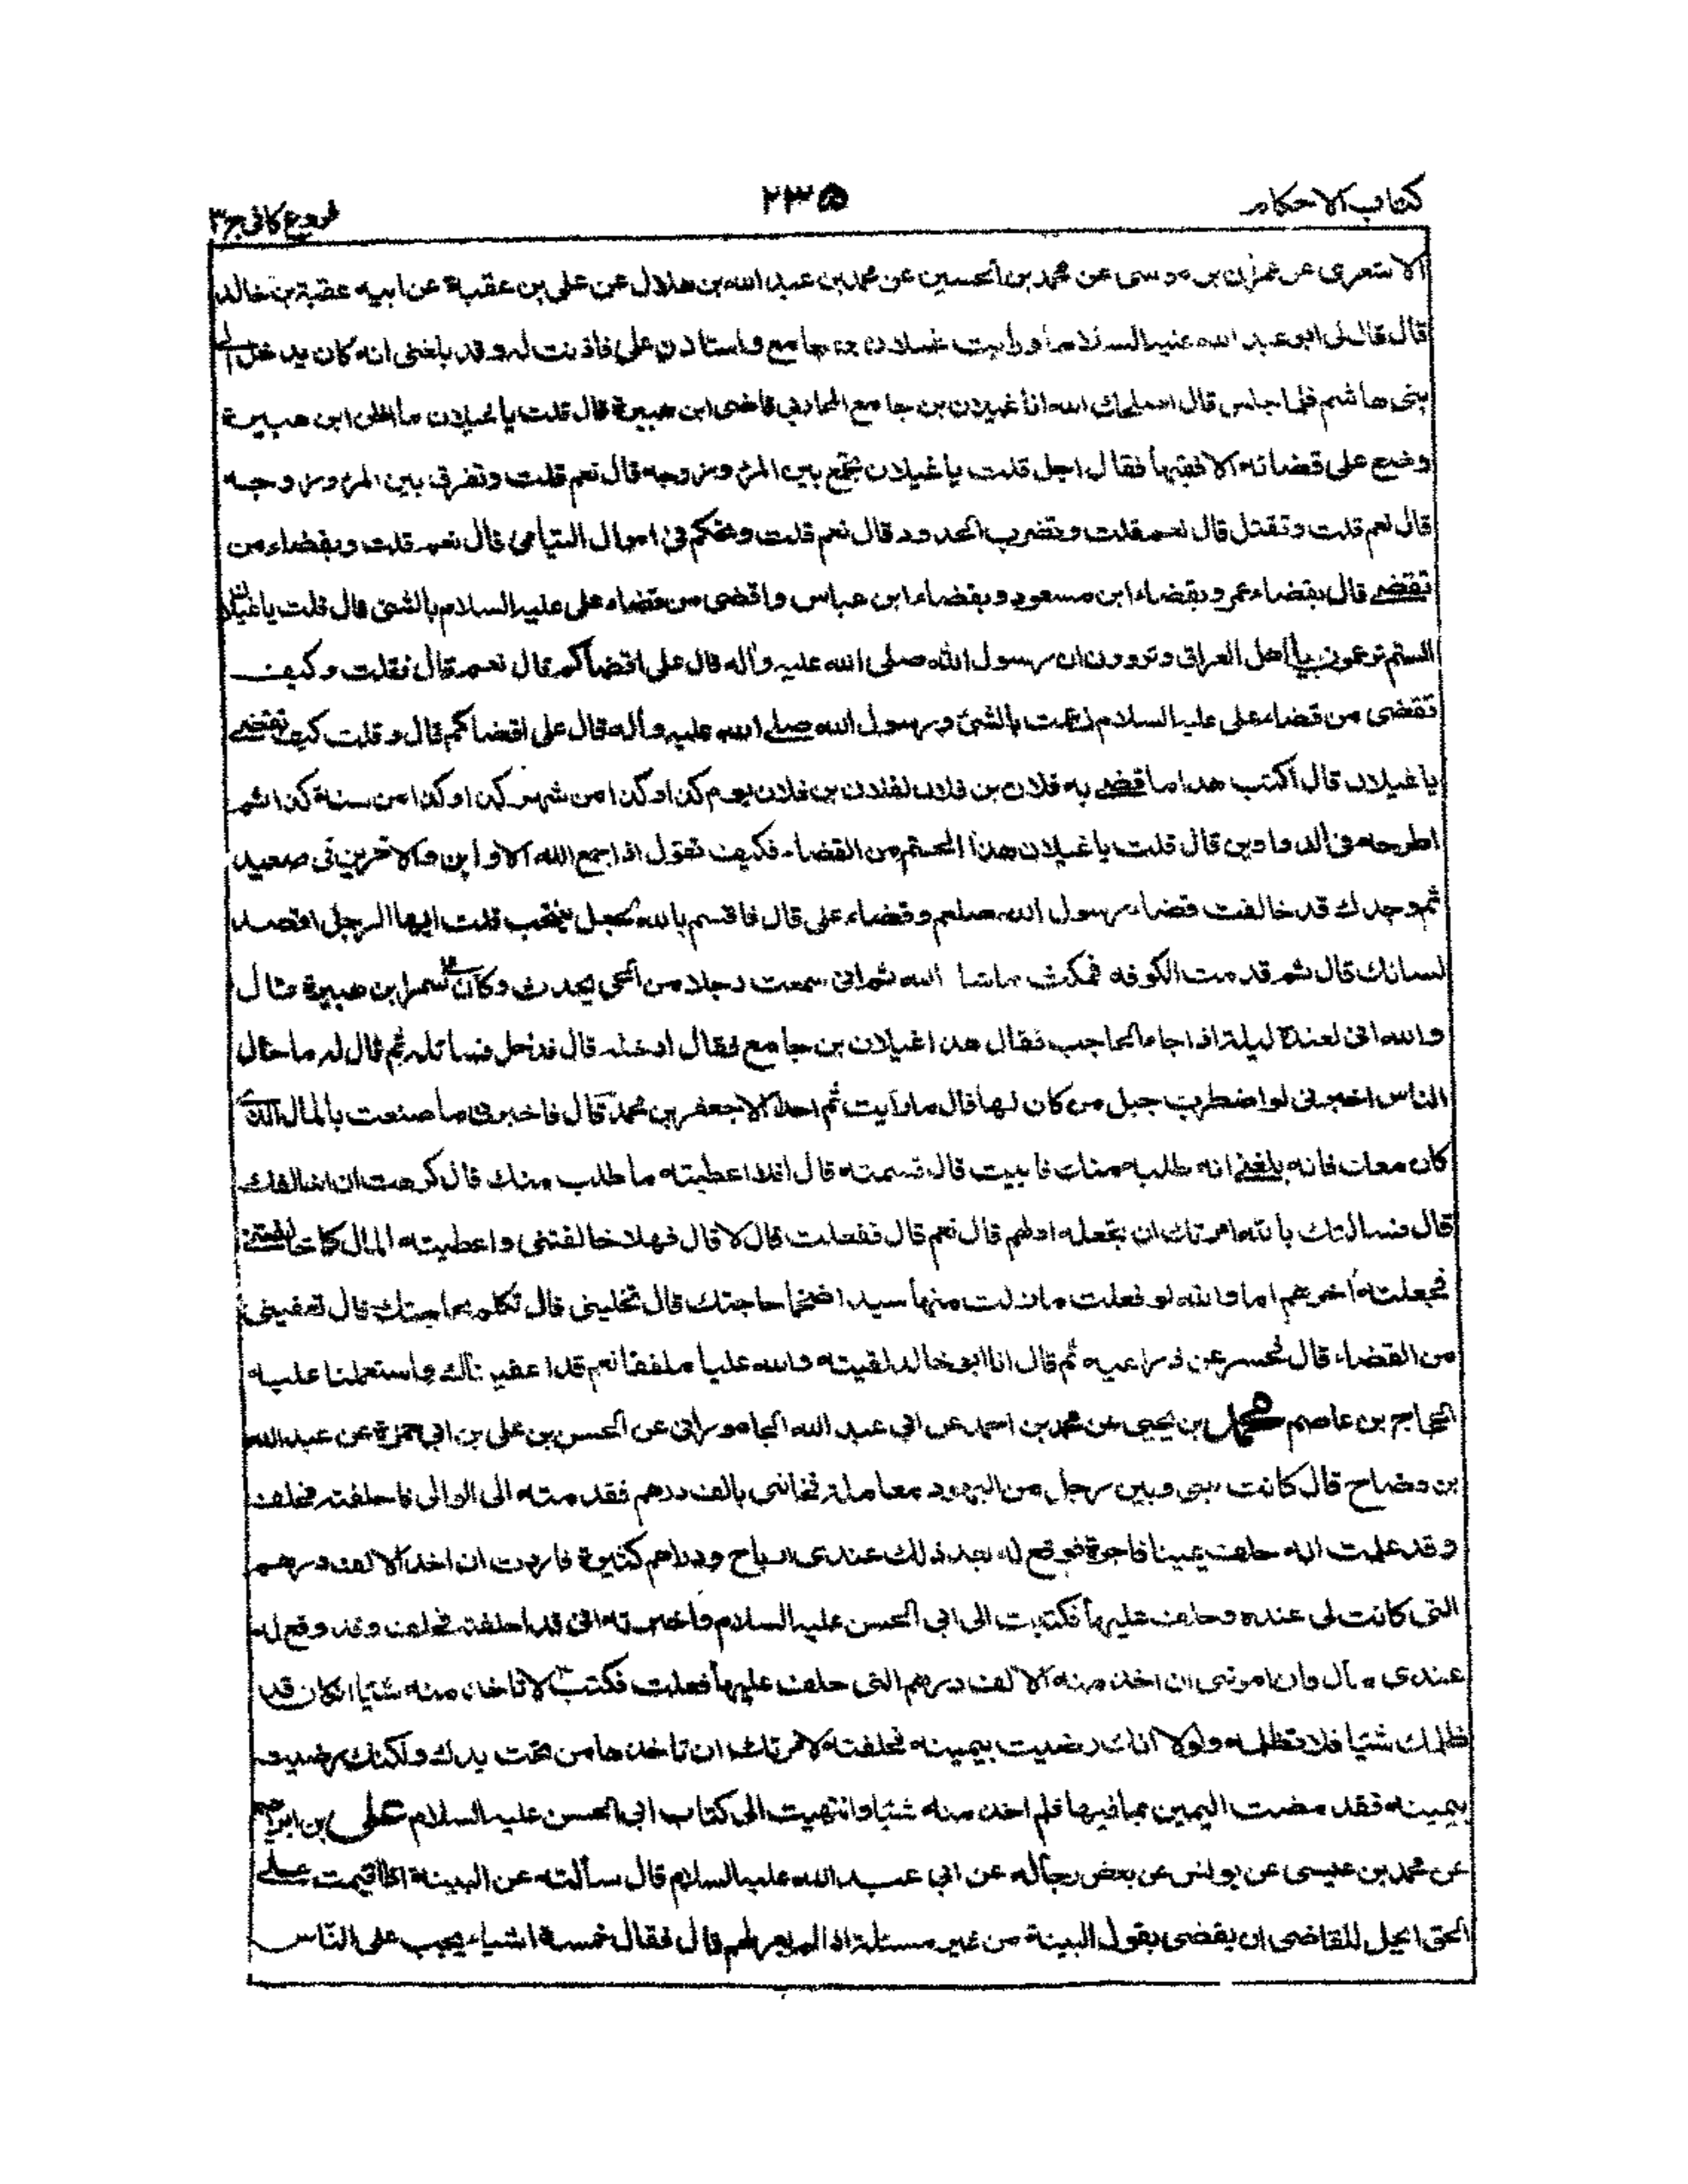 كتاب الاحكام
٢٣٥
فروع كافى ج٣
الاشعرى عن عمران بن موسى عن محمد بن الحسين عن محمد بن عبد الله بن هلال عن على بن عقبة عن ابيه عقبة بن خالد
قال قال لى ابو عبد الله عليه السلام لو رايت غيلان بن جامع واستاذن على فاذنت له وقد بلغنى انه كان يدخل الى
بنى هاشم فلما جلس قال اصلحك الله انا غيلان بن جامع المحاربى قاضى ابن هبيرة قال قلت يا غيلان ما اظن ابن هبيرة
وضع على قضائه الا فقيها فقال اجل قلت يا غيلان تجمع بين المرء وزوجه قال نعم قلت وتفرق بين المرء وزوجه
قال نعم قلت وتقتل قال نعم قلت وتضرب الحدود قال نعم قلت وتحكم فى اموال اليتامى قال نعم قلت وبقضاء من
تقضى قال بقضاء عمر وبقضاء ابن مسعود وبقضاء ابن عباس واقضى من قضاء على عليه السلام بالشئ قال قلت يا غيلان
الستم تزعمون يا اهل العراق وتروون ان رسول الله صلى الله عليه وآله قال على اقضاكم قال نعم قال فقلت وكيف
تقضى من قضاء على عليه السلام زعمت بالشئ ورسول الله صلى الله عليه وآله قال على اقضاكم قال وقلت كيف تقضى
يا غيلان قال اكتب هذا ما قضى به فلان بن فلان لفلان بن فلان يوم كذا وكذا من شهر كذا وكذا من سنة كذا ثم
اطرحه فى الدواوين قال قلت يا غيلان هذا الحتم من القضاء فكيف تقول اذا جمع الله الاولين والاخرين فى صعيد
ثم وجدك قد خالفت قضاء رسول الله صلعم وقضاء على قال فاقسم بالله لجعل ينتحب قلت ايها الرجل اقصد
لسانك قال ثم قدمت الكوفه فمكثت ماشا الله ثم انى سمعت رجلا من الحى يحدث وكان فى سمر ابن هبيرة قال
والله انى لعنده ليلة اذ اجاءه الحاجب فقال هذا غيلان بن جامع فقال ادخله قال فدخل فسائله ثم قال له ما حال
الناس اخبرنى لو اضطرب حبل من كان لها قال ما رايت ثم احدا الا جعفر بن محمد قال فاخبرنى ما صنعت بالمال الذى
كان معك فانه بلغنى انه طلبه منك فابيت قال قسمته قال افلا اعطيته ما طلب منك قال كرهت ان اخالفك
قال فسالتك بالله امرتك ان تجعله اولهم قال نعم قال ففعلت قال لا قال فهلا خالفتنى واعطيته المال كما خالفتنى
فجعلته اخرهم اما والله لو فعلت ما زلت منها سيدا ضخما حاجتك قال تخلينى قال تكلم بحاجتك قال تعفينى
من القضاء قال فحسر عن ذراعيه ثم قال انا ابو خالد لقيته والله عليا ملفقا نعم قد اعفيناك واستعملنا عليه
الحجاج بن عاصم محمد بن يحيى عن محمد بن احمد عن ابى عبد الله الجامورانى عن الحسن بن على بن ابى حمزة عن عبد الله
بن وضاح قال كانت بينى وبين رجل من اليهود معاملة فخاننى بالف درهم فقدمته الى الوالى فاحلفته فحلف
وقد علمت انه حلف يمينا فاجرة فوقع له بعد ذلك عندى ارباح ودراهم كثيرة فاردت ان اخذ الالف درهم
التى كانت لى عنده وحلف عليها فكتبت الى ابى الحسن عليه السلام واخبرته انى قد احلفته فحلف وقد وقع له
عندى مال وان امرتنى ان اخذ منه الالف درهم التى حلف عليها فعلت فكتب لا تاخذ منه شئيا ان كان قد
ظلمك شئيا فلا تظلمه ولولا انك رضيت بيمينه فحلفته لامرتك ان تاخذها من تحت يدك ولكنك رضيت
بيمينه فقد مضت اليمين بما فيها فلم اخذ منه شئيا وانتهيت الى كتاب ابى الحسن عليه السلام على بن ابراهيم
عن محمد بن عيسى عن يونس عن بعض رجاله عن ابى عبد الله عليه السلام قال سألته عن البينة اذا اقيمت على
الحق ايحل للقاضى ان يقضى بقول البينة من غير مسئلة اذا لم يعرفهم قال فقال خمسة اشياء يجب على الناس